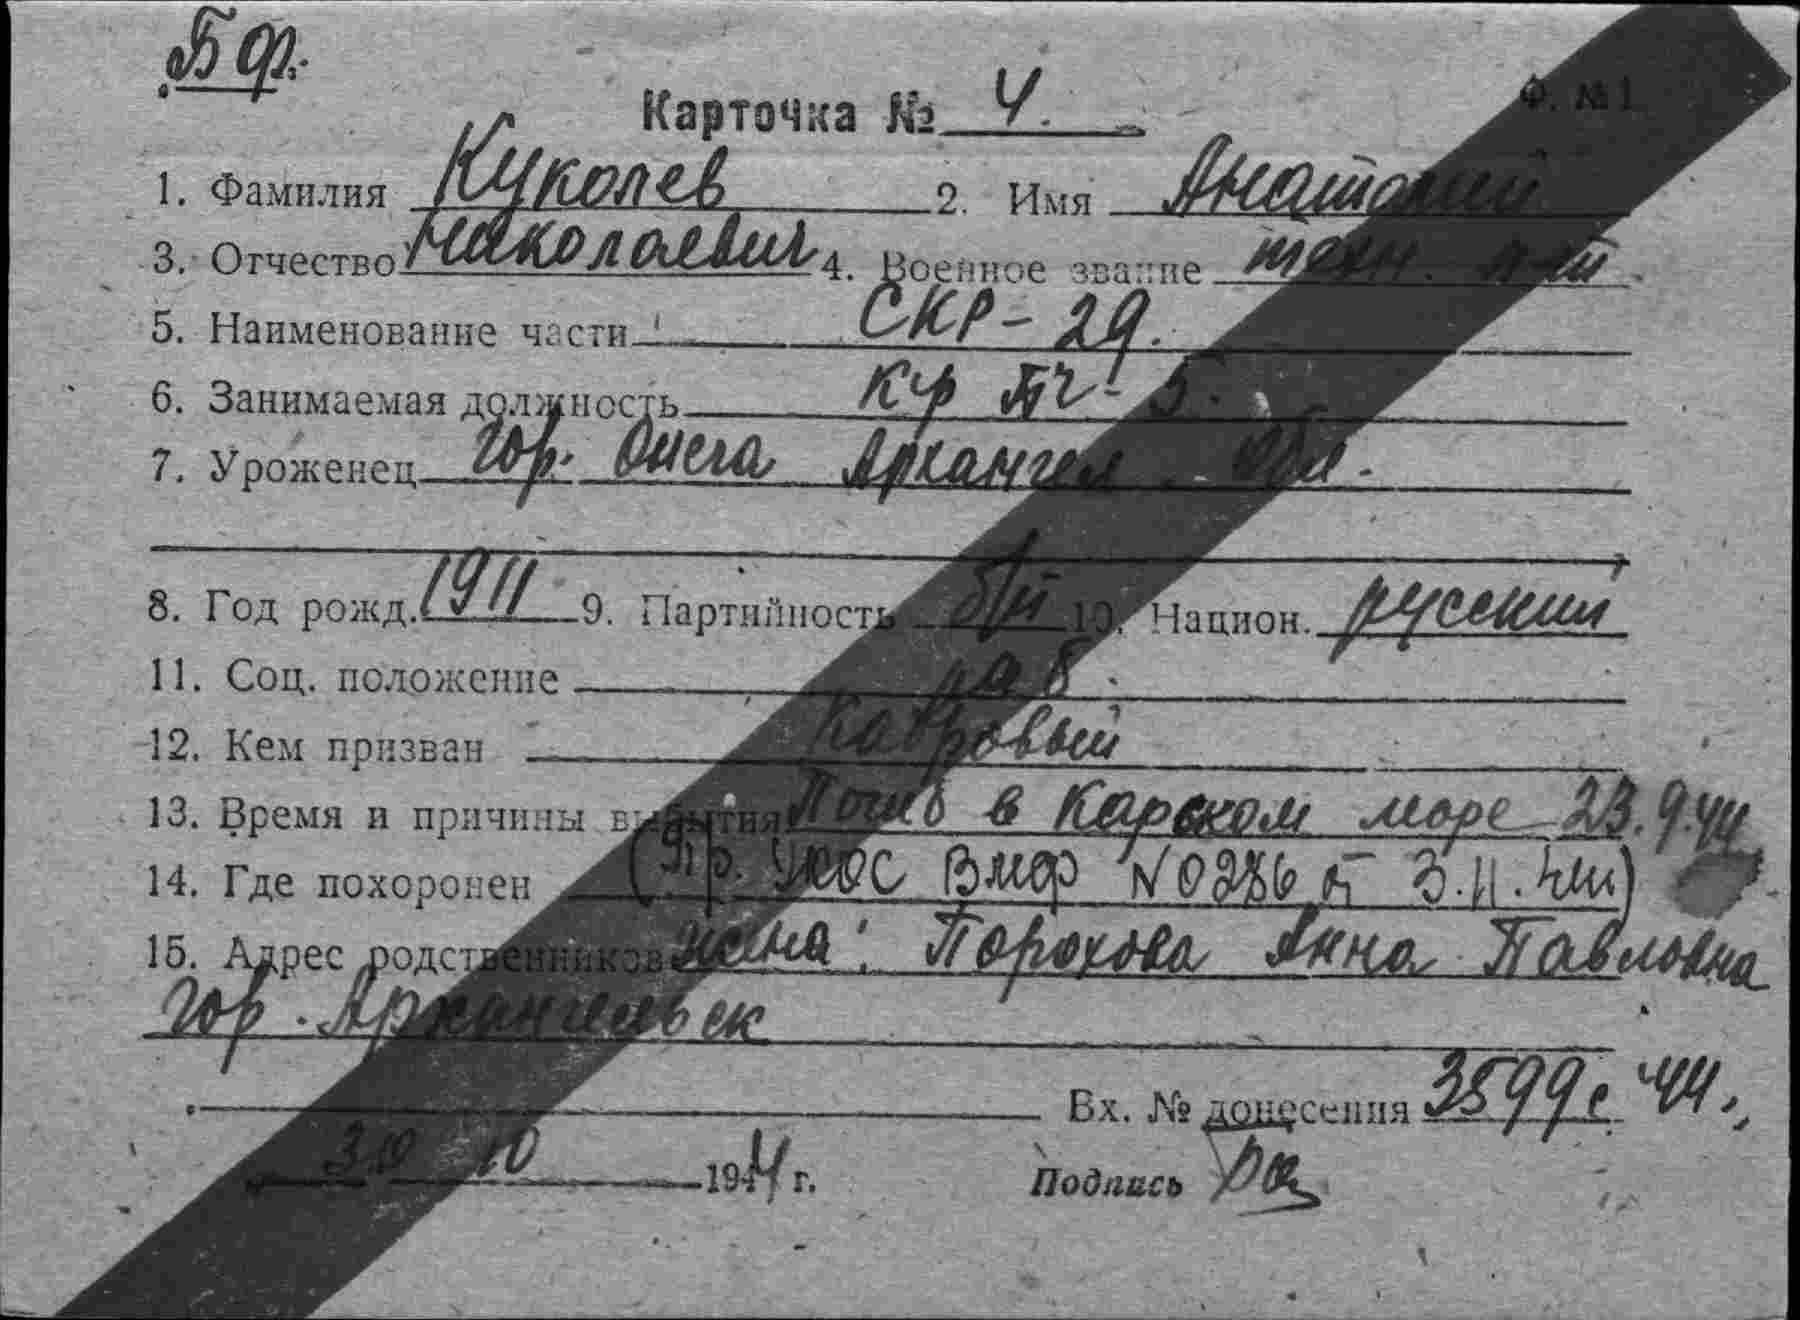 Бф.
Ф. №1
Карточка № 4.
1. Фамилия Куколев 2. Имя Анатолий
3. Отчество Николаевич 4. Военное звание техн. л-т
5. Наименование части СКР-29.
6. Занимаемая должность К-р БЧ-5.
7. Уроженец гор. Онега Архангел. обл.
8. Год рожд. 1911 9. Партийность б/п 10. Национ. русский
11. Соц. положение раб.
12. Кем призван Кадровый
13. Время и причины выбытия Погиб в Карском море 23.9.44
14. Где похоронен (Пр. УКОС ВМФ N0286 от 3.11.44)
15. Адрес родственников жена: Порохова Анна Павловна
гор. Архангельск
Вх. № донесения 3599с 44г.
30 10 1944 г. Подпись